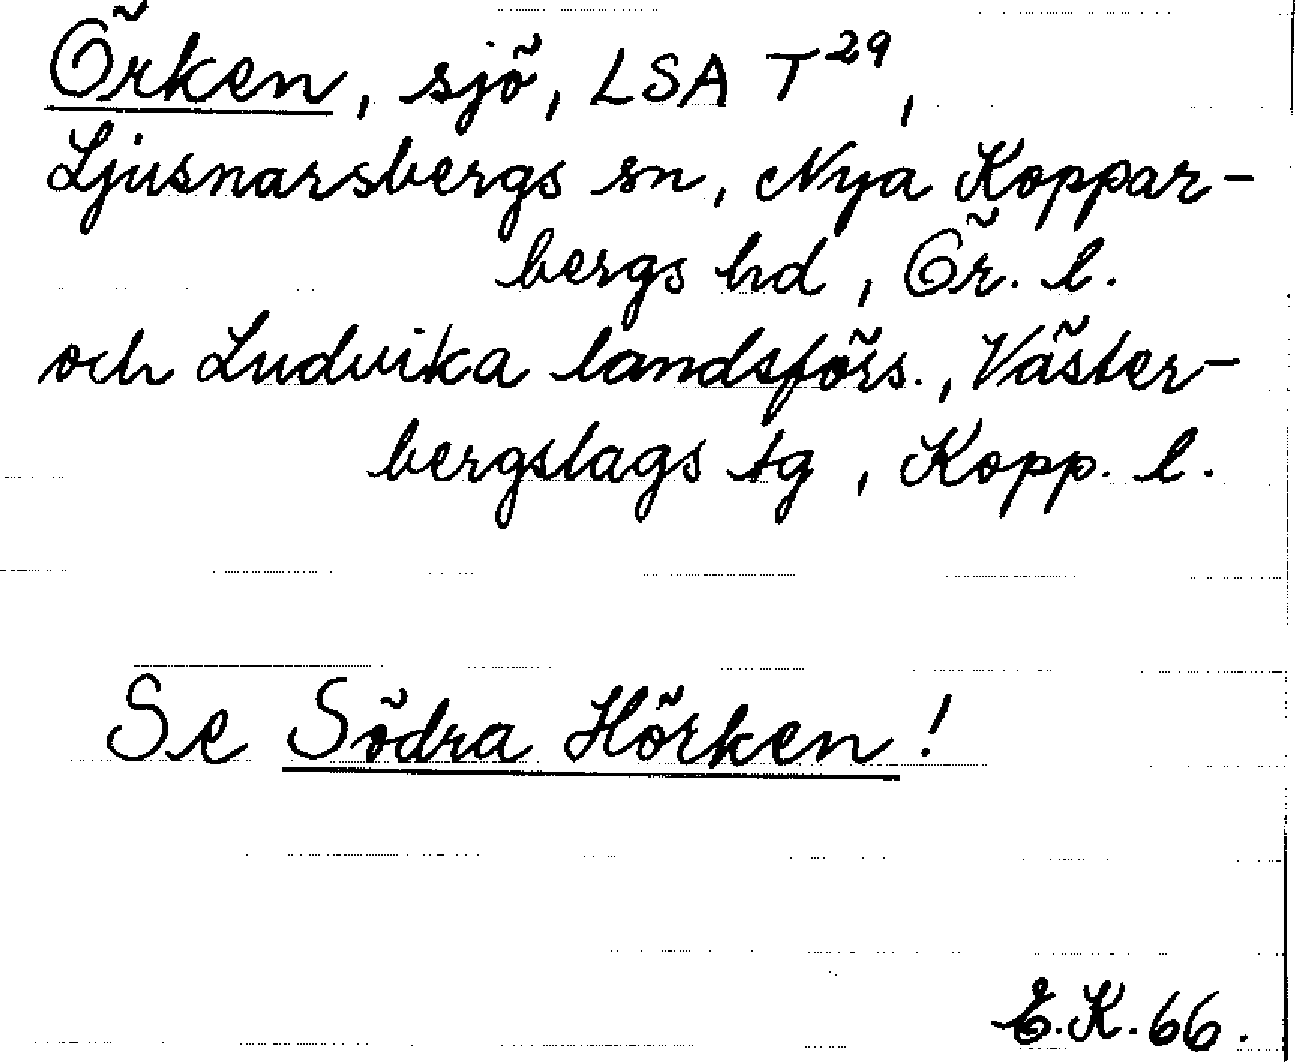 Örken, sjö, LSA T²⁹,
Ljusnarsbergs sn, Nya Koppar-
bergs hd, Ör. l.
och Ludvika landsförs., Väster-
bergslags tg, Kopp. l.
Se Södra Hörken!
E.K. 66.